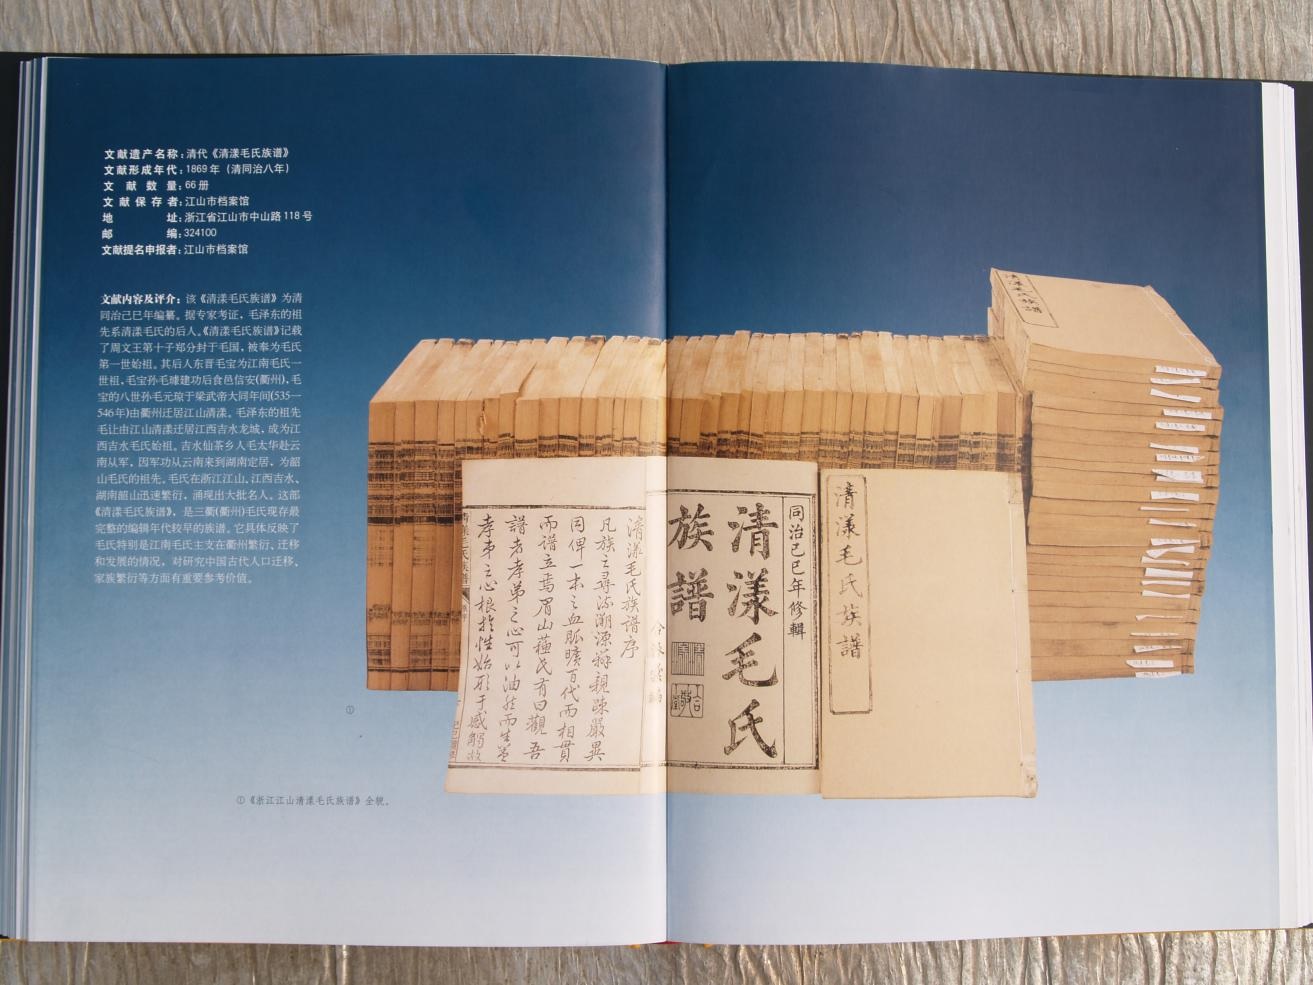 文献遗产名称：清代《清漾毛氏族谱》
文献形成年代：1869年（清同治八年）
文献数量：66册
文献保存者：江山市档案馆
地址：浙江省江山市中山路118号
邮编：324100
文献提名申报者：江山市档案馆
文献内容及评介：该《清漾毛氏族谱》为清
同治己巳年编纂。据专家考证，毛泽东的祖
先系清漾毛氏的后人。《清漾毛氏族谱》记载
了周文王第十子郑分封于毛国，被奉为毛氏
第一世始祖。其后人东晋毛宝为江南毛氏一
世祖，毛宝孙毛璩建功后食邑信安(衢州)，毛
宝的八世孙毛元琼于梁武帝大同年间(535—
546年)由衢州迁居江山清漾。毛泽东的祖先
毛让由江山清漾迁居江西吉水龙城，成为江
西吉水毛氏始祖。吉水仙茶乡人毛太华赴云
南从军，因军功从云南来到湖南定居，为韶
山毛氏的祖先。毛氏在浙江江山、江西吉水、
湖南韶山迅速繁衍，涌现出大批名人。这部
《清漾毛氏族谱》，是三衢(衢州)毛氏现存最
完整的编辑年代较早的族谱。它具体反映了
毛氏特别是江南毛氏主支在衢州繁衍、迁移
和发展的情况，对研究中国古代人口迁移、
家族繁衍等方面有重要参考价值。
①
①《浙江江山清漾毛氏族谱》全貌。
清漾毛氏族譜
清漾毛氏族譜序
凡族之尋流溯源辨親疎嚴異
同俾一本之血脈曠百代而相貫
而譜立焉眉山蘓氏有曰觀吾
譜者孝弟之心可以油然而生蓋
孝弟之心根於性始形于感觸故
同治己巳年修輯
清漾毛氏
族譜
清漾毛氏族譜